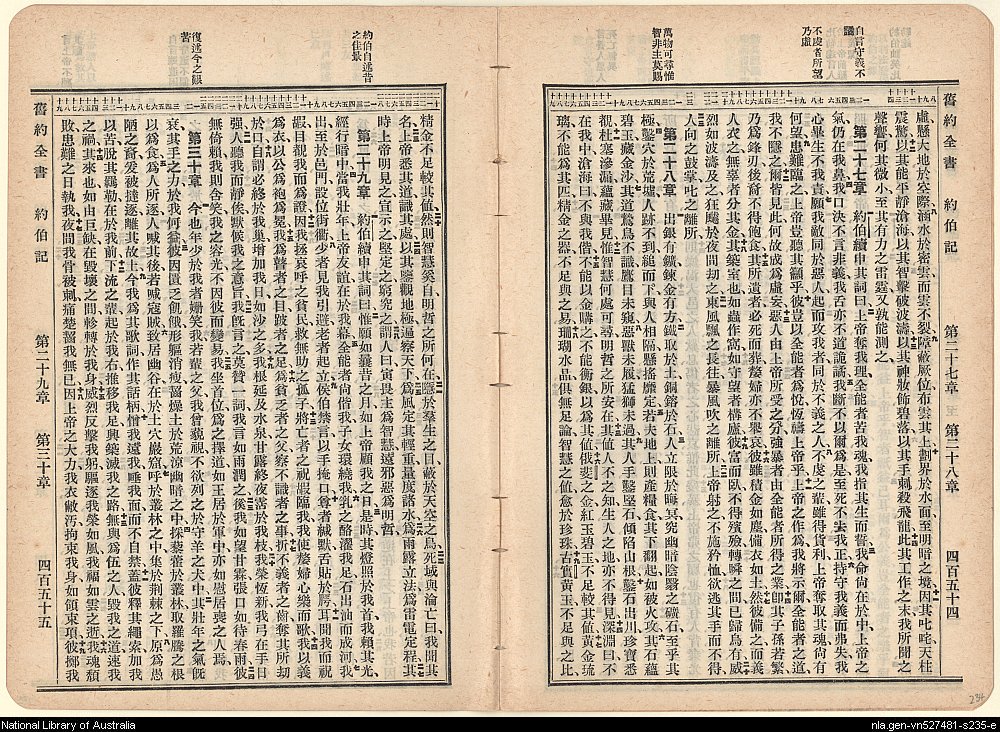 舊約全書 約伯記 第二十七章 第二十八章 四百五十四
自言守義不
不虔者所望
乃虛
萬物可尋惟
智非主莫賜
虛懸大地於空際涵水於密雲而雲不裂障蔽厥位布雲其上劃界於水面至明暗之境因其叱咤天柱
震驚以其能平靜滄海以其智擊破波濤以其神妝飾碧落以其手刺殺飛龍此其工作之末我所聞之
聲響何其微小至其有力之雷霆又孰能測之
第二十七章 約伯續申其詞曰上帝奪我理全能者苦我魂我指其生而誓我命尚在於中上帝之
氣仍在我鼻我口決不言非義我舌亦不道詭譎我斷不以爾為是至死不去我正持守我義而弗失我
心畢生不我責願我敵同於惡人起而攻我者同於不義之人不虔之輩雖得貨利上帝奪取其魂尚有
何望患難臨之上帝豈聽其籲乎彼豈以全能者為悅恆禱上帝乎上帝之作為我將示爾全能者之道
我不隱之爾皆見此何故成為虛妄惡人由上帝所受之分強暴者由全能者所得之業即其子孫若繁
乃為鋒刃後裔不得飽食其所遺者必死而葬嫠婦亦不舉哀彼雖積金如塵備衣如土然彼備之而義
人衣之無辜者分其金其築室也如蟲作窩如守望者構廬彼富而臥不得殯殮轉瞬之間已歸烏有威
烈如波濤及之狂飈於夜間刼之東風飄之長往暴風吹之離所上帝射之不施矜恤欲逃其手而不得
人向之鼓掌叱之離所
第二十八章 出銀有鑛鍊金有方鐵取於土銅鎔於石人立限於晦冥究幽暗陰翳之礦石至乎其
極鑿穴於荒墟人跡不到縋而下與人相隔懸搖靡定若夫地上則產糧食其下翻起如被火攻其石蘊
碧玉藏金沙其道鷙鳥不識鷹目未窺惡獸未履猛獅未過其人手鑿堅石傾陷山根鑿石出川珍寶悉
覩杜塞滲漏蘊藏畢見惟智慧何處可尋明哲之所安在其值人不之知生人之地亦不得見深淵曰不
在我中滄海曰不與我偕不能以金購之不能衡銀以為其值俄斐之金紅玉碧玉不足較其值黃金琉
璃不能為其匹精金之器不足與之易珊瑚水晶俱無足論智慧之值愈於珍珠古實黃玉不足與之比
約伯自述昔
之佳景
復述今之艱
苦
精金不足較其值然則智慧奚自明哲之所何在隱於羣生之目蔽於天空之鳥死域與淪亡曰我聞其
名上帝悉其道識其處以其鑒觀地極遍察天下為風定其輕重量度諸水為雨露立法為雷電定程其
時上帝明見之宣示之堅定之窮究之謂人曰寅畏主為智慧遠邪惡為明哲
第二十九章 約伯續申其詞曰惟願如曩昔之月如上帝顧我之日是時其燈照於我首我賴其光
經行暗中當我壯年上帝友誼在於我幕全能者尚偕我子女環繞我乳之酪濯我足石出油而成河我
出至於邑門設位街衢少者見我引避老者起立侯伯禁言以手掩口尊者緘默舌貼於腭耳聞我而祝
嘏目覩我而為證因我拯哀呼之貧民救無助之孤子將亡者之祝嘏臨我我使嫠婦心樂而歌我以義
為衣以公為袍為冕我為瞽者之目跛者之足為貧乏者之父察不識者之事折不義者之齒奪其所刼
於口自謂必終於我巢增加我日如沙之多我根延及水泉甘露終夜霑於我枝我榮恆新我弓在手日
強人聽我而靜俟默候我之意旨我既言之莫贊一詞我言如雨潤之後我如望甘霖張口如待春雨彼
無倚賴我則含笑我之容光不因彼而變易我坐首位為之擇道如王居於軍中亦如慰居喪之人焉
第三十章 今也年少於我者姗笑我若輩之父我曾藐視不欲列之於守羊之犬中其壯年之氣既
衰其手之力於我何益彼因匱乏飢餓形軀消瘦齧燥土於荒涼幽暗之中採藜藿於叢林取羅騰之根
以為食為人所逐人喊其後若喊寇賊致居幽谷在於土穴巖窟呼於叢林之中集於荊棘之下原為愚
陋之裔爰被撻逐離其故土今我為其歌詞作其話柄憎我遠我唾我面而不自禁蓋彼釋其繩索加我
以苦脫其羈勒在於我前下流之輩起於我右推移我足興築滅我之路無與為伍之人毀我之道速我
之禍其來也如由巨缺在毀壞之間軫轉於我身威烈反擊我躬驅逐我榮如風我福如雲之逝我魂頹
敗患難之日執我夜間我骨彼刺痛楚齧我無已因上帝之大力我衣敝污拘束我身如領束項彼擲我
舊約全書 約伯記 第二十九章 第三十章 四百五十五
234
National Library of Australia
nla.gen-vn527481-s235-e